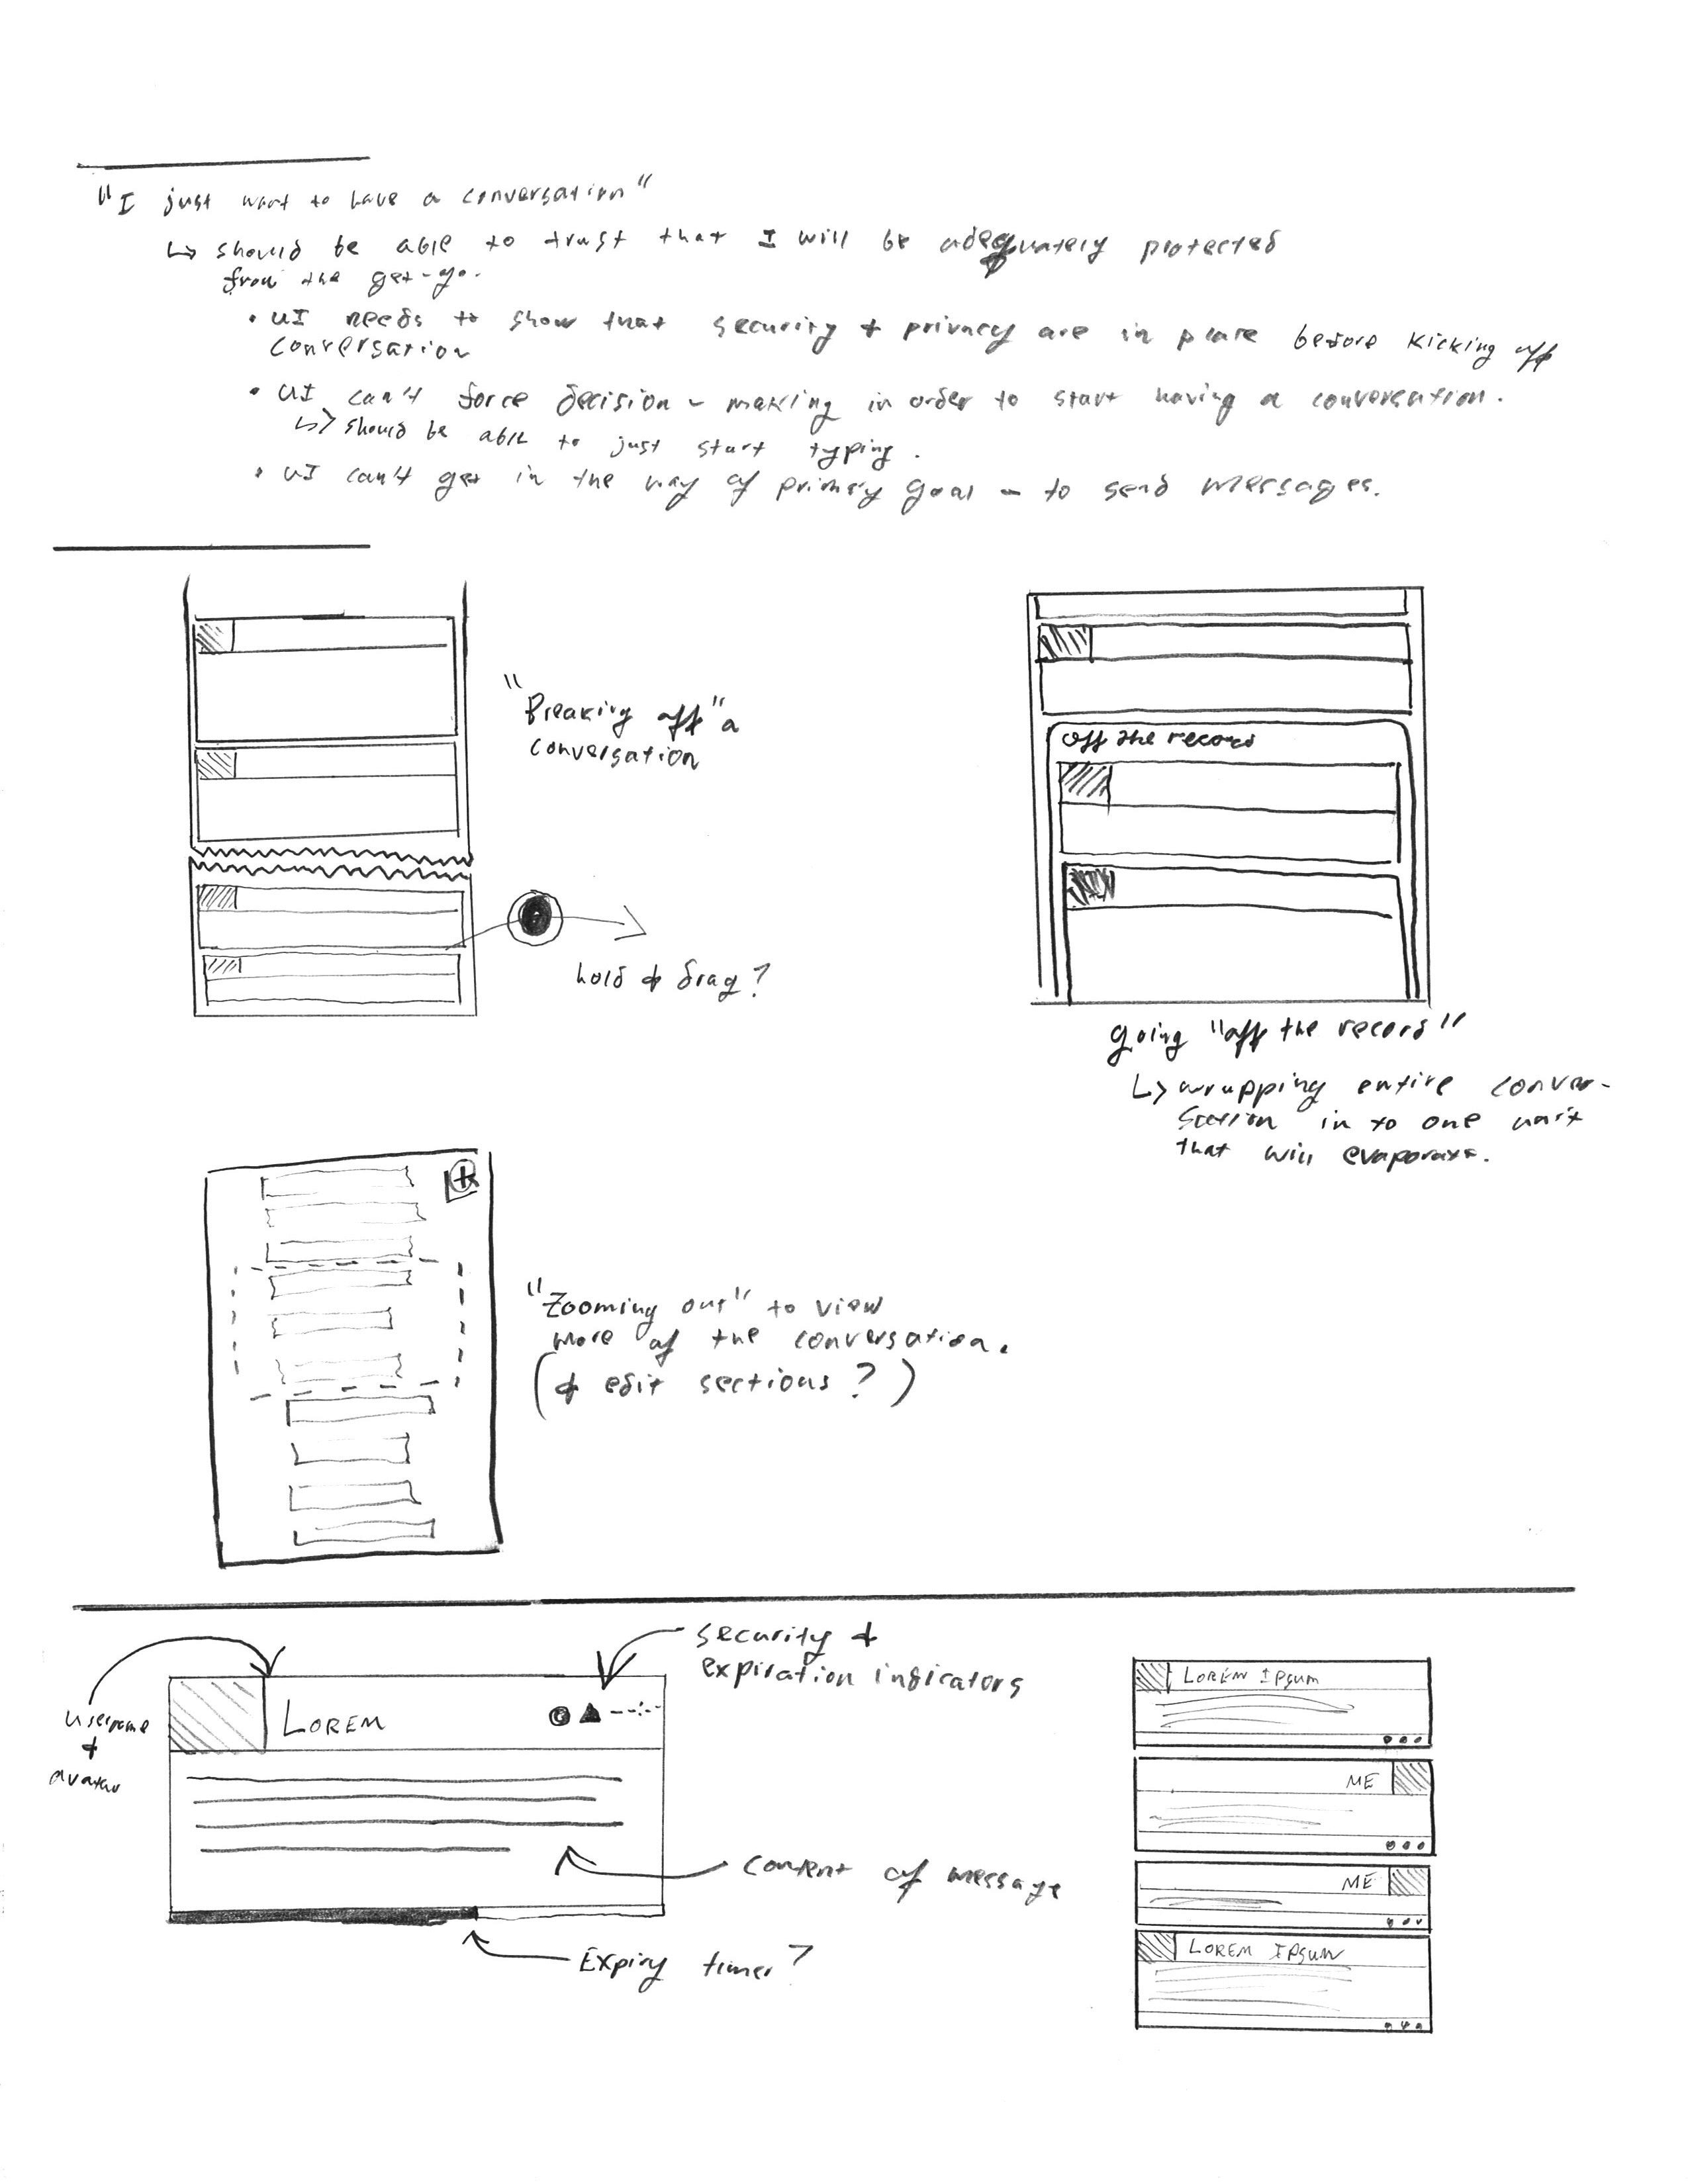 "I just want to have a conversation"
↳ should be able to trust that I will be adequately protected
from the get-go.
• UI needs to show that security & privacy are in place before kicking off
conversation
• UI can't force decision-making in order to start having a conversation.
↳ should be able to just start typing.
• UI can't get in the way of primary goal - to send messages.
"Breaking off" a
conversation
hold & drag?
off the record
going "off the record"
↳ wrapping entire conver-
sation in to one unit
that will evaporate.
"Zooming out" to view
more of the conversation.
(& edit sections?)
security &
expiration indicators
username
&
avatar
LOREM
content of message
Expiry timer?
LOREM IPSUM
ME
ME
LOREM IPSUM